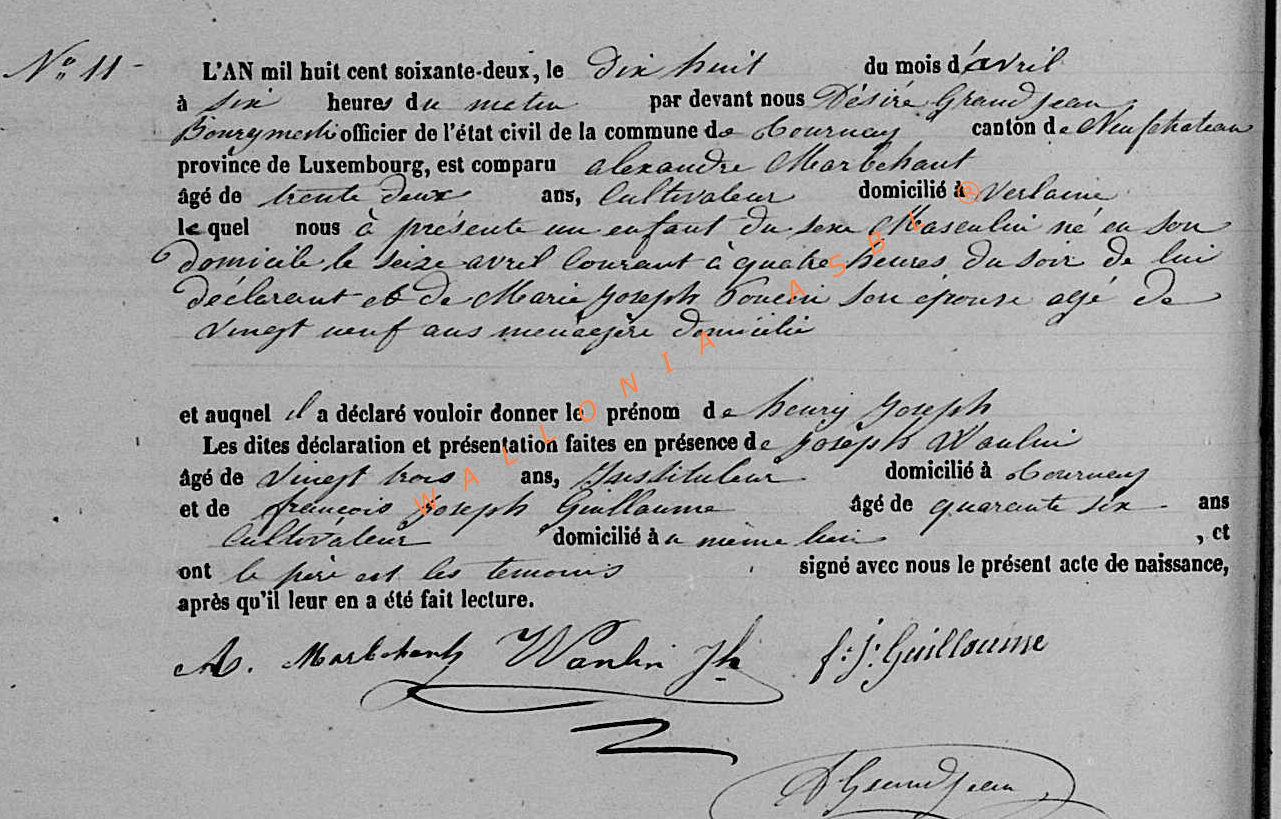 N° 11 -
L'AN mil huit cent soixante-deux, le dix huit du mois d'avril
à six heures du matin par devant nous Désiré Grandjean
Bourgmestre officier de l'état civil de la commune de Tournay canton de Neufchateau
province de Luxembourg, est comparu alexandre Marbehant
âgé de trente deux ans, Cultivateur domicilié à Verlaine
lequel nous à présenté un enfant du sexe Masculin né en son
domicile le seize avril Courant à quatre heures du soir de lui
déclarant et de Marie Joseph son épouse agé de
vingt neuf ans menagère domicilié
et auquel il a déclaré vouloir donner le prénom de henry Joseph
Les dites déclaration et présentation faites en présence de Joseph Wanlin
âgé de vingt trois ans, Instituteur domicilié à Tournay
et de françois Joseph Guillaume âgé de quarante six ans
Cultivateur domicilié à u même lieu , et
ont le père est les temoins signé avec nous le présent acte de naissance,
après qu'il leur en a été fait lecture.
As. Marbehant Wanlin Jh f: J: Guillaume
D Grandjean
WALLONIA ASBL ®